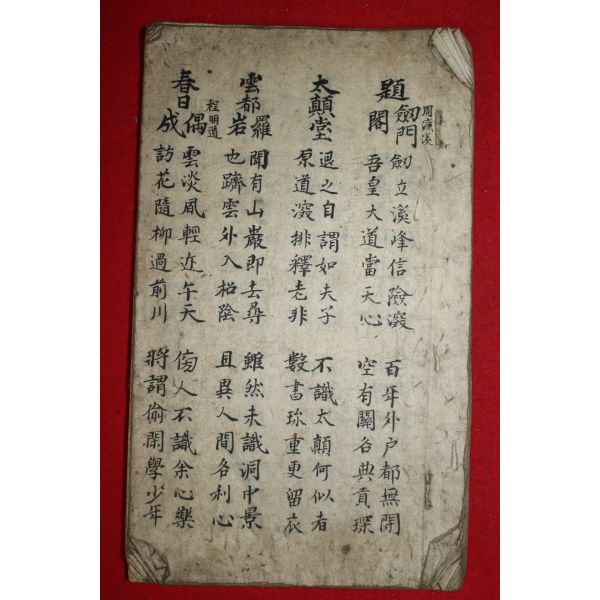 題劔門閣
周濂溪
劔立溪峰信險深
吾皇大道當天心
百年外戶都無閉
空有關名典貢琛
太顚堂
退之自謂如夫子
原道深排釋老非
不識太顚何似者
數書珍重更留衣
雲都羅岩
聞有山巖即去尋
也躋雲外入松陰
雖然未識洞中景
且異人間名利心
春日偶成
程明道
雲淡風輕近午天
訪花隨柳過前川
傍人不識余心樂
將謂偷閑學少年